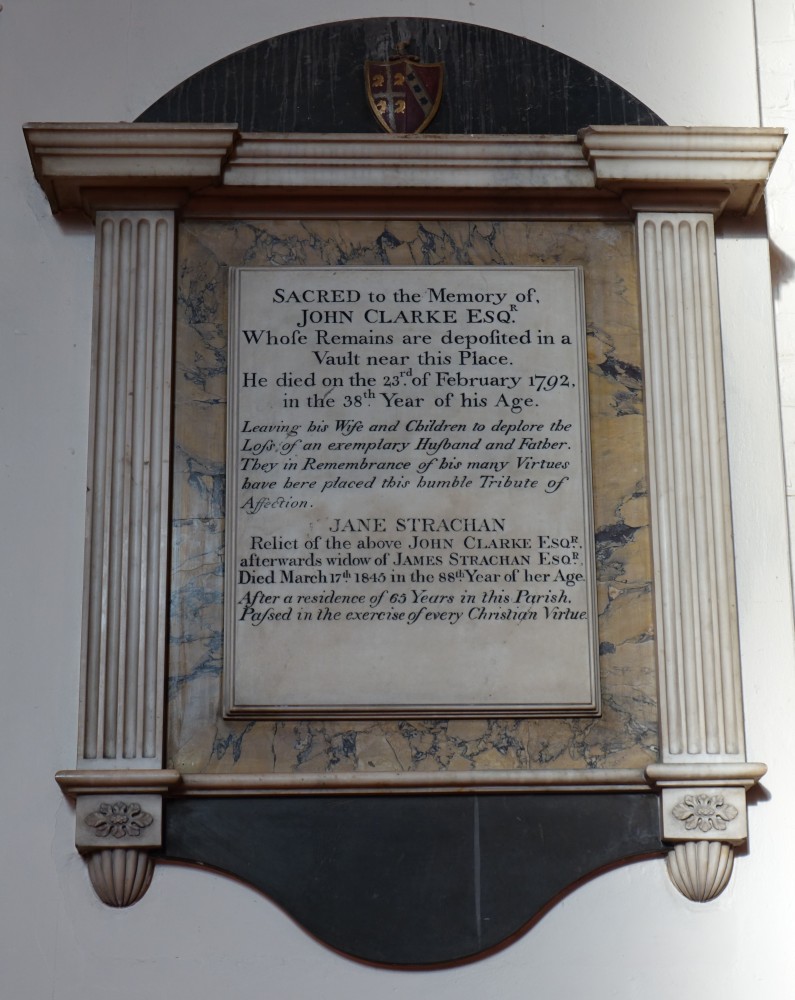 SACRED to the Memory of,
JOHN CLARKE ESQ.R
Whoſe Remains are depoſited in a
Vault near this Place.
He died on the 23.rd of February 1792,
in the 38.th Year of his Age.
Leaving his Wife and Children to deplore the
Loſs of an exemplary Huſband and Father.
They in Remembrance of his many Virtues
have here placed this humble Tribute of
Affection.
JANE STRACHAN
Relict of the above JOHN CLARKE ESQR.
afterwards widow of JAMES STRACHAN ESQR.
Died March 17th 1845 in the 88th Year of her Age
After a residence of 65 Years in this Parish.
Paſsed in the exercise of every Christian Virtue.